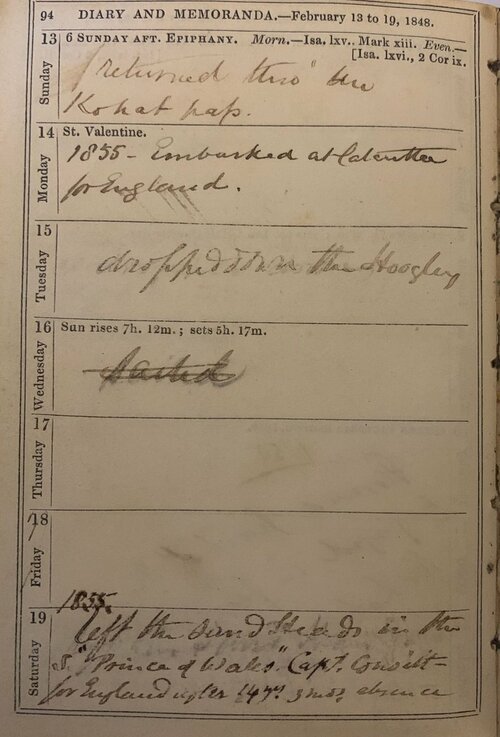 94 DIARY AND MEMORANDA.—February 13 to 19, 1848.
13 6 SUNDAY AFT. EPIPHANY. Morn.—Isa. lxv., Mark xiii. Even.—
[Isa. lxvi., 2 Cor ix.
Sunday
returned thro' the
Kohat pass.
14 St. Valentine.
Monday
1855 - Embarked at Calcutta
for England.
15
Tuesday
dropped down the Hoogley
16 Sun rises 7h. 12m.; sets 5h. 17m.
Wednesday
Sailed
17
Thursday
18
Friday
1855.
19
Saturday
left the Sand Heads in the
"Prince of Wales" Capt.
for England after 14 yrs 3 mos absence